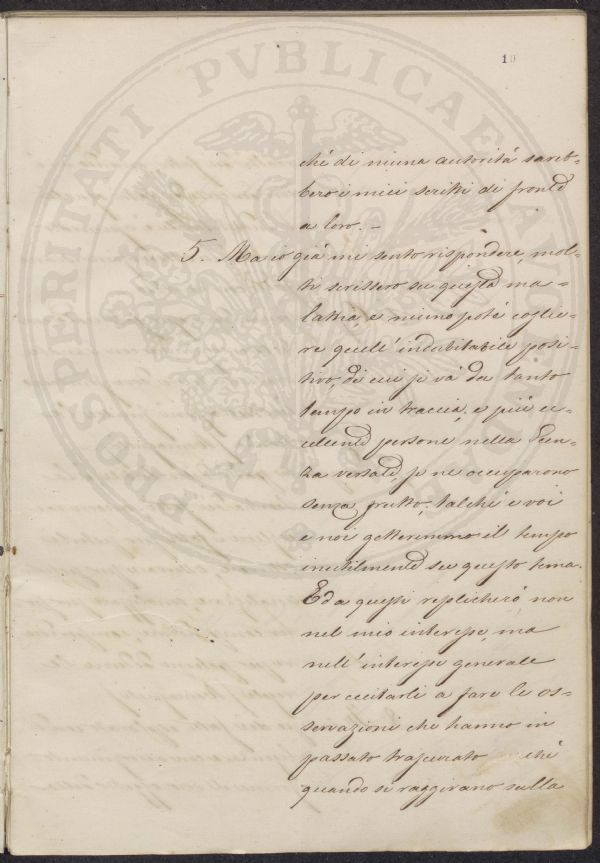 10
ché di niuna autorità sareb-
bero i miei scritti di fronte
a loro. -
5. Ma io già mi sento rispondere, mol-
ti scrissero su questa ma-
lattia, e niuno potè coglie-
re quell' indubitabile posi-
tivo, di cui si và da tanto
tempo in traccia, e più ec-
cellente persone nella Scien-
za versate, se ne occuparono
senza frutto, talché e voi
e noi getteremmo il tempo
inutilmente su questo tema.
Ed a questi replicherò, non
nel mio interesse, ma
nell' interesse generale
per eccitarli a fare le os-
servazioni che hanno in
passato trascurato
quando si raggirano sulla
PROSPERITATI PVBLICAE